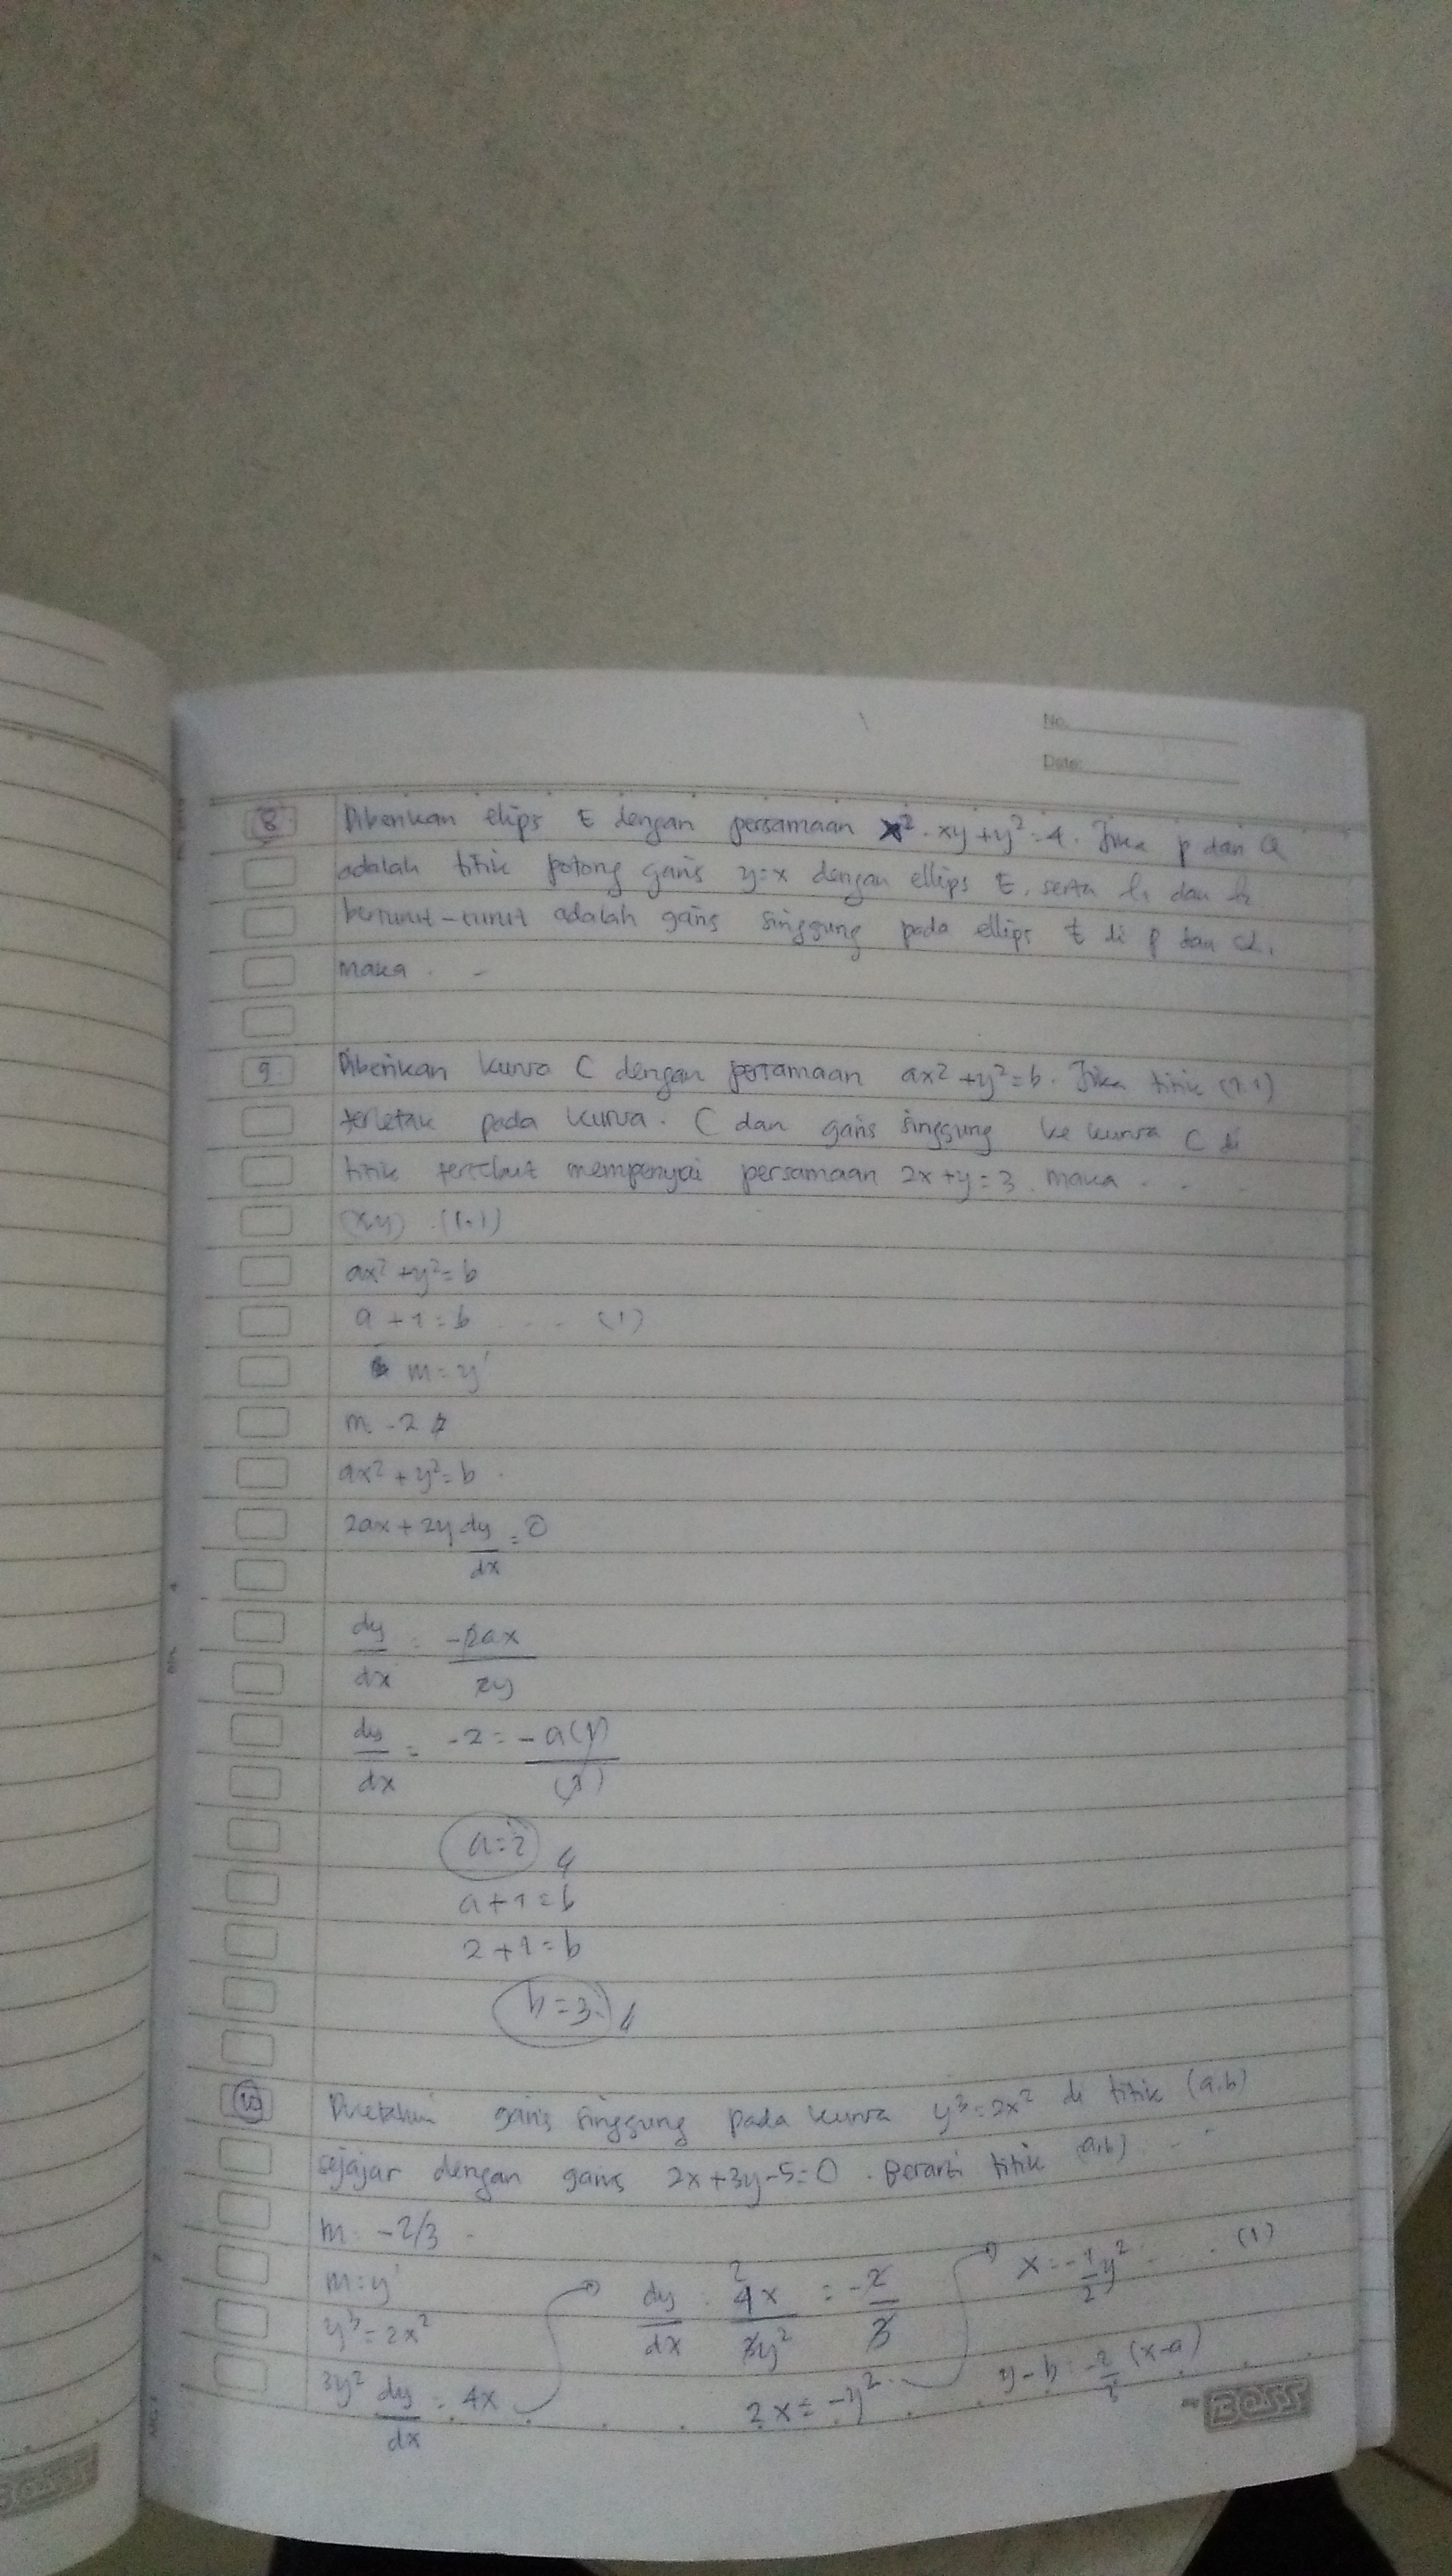 No.
Date:
8 Diberikan elips E dengan persamaan x². xy + y² = 4. Jika P dan Q
adalah titik potong garis y=x dengan ellips E, serta l₁ dan l₂
berturut-turut adalah garis singgung pada ellips E di P dan Q,
maka . -
9 Diberikan kurva C dengan persamaan ax² + y² = b. Jika titik (1.1)
terletak pada kurva. C dan garis singgung ke kurva C di
titik tersebut mempenyai persamaan 2x + y = 3. maka . . .
(x,y) . (1.1)
ax² + y² = b
a + 1 = b . . . (1)
m = y'
m - 2
ax² + y² = b .
2ax + 2y dy/dx = 0
dy/dx = -2ax/2y
dy/dx = -2 = -a(1)/(1)
a = 2
a + 1 = b
2 + 1 = b
b = 3
10 Diketahui garis singgung pada kurva y³ = 2x² di titik (a.b)
sejajar dengan garis 2x + 3y - 5 = 0 . Berarti titik (a.b) . . .
m = -2/3
m = y'
y³ = 2x²
3y² dy/dx = 4x
dy/dx = 4x/3y² = -2/3
2
2x = -y²
x = -1/2 y² . . . (1)
y - b = -2/3 (x-a)
BOSS